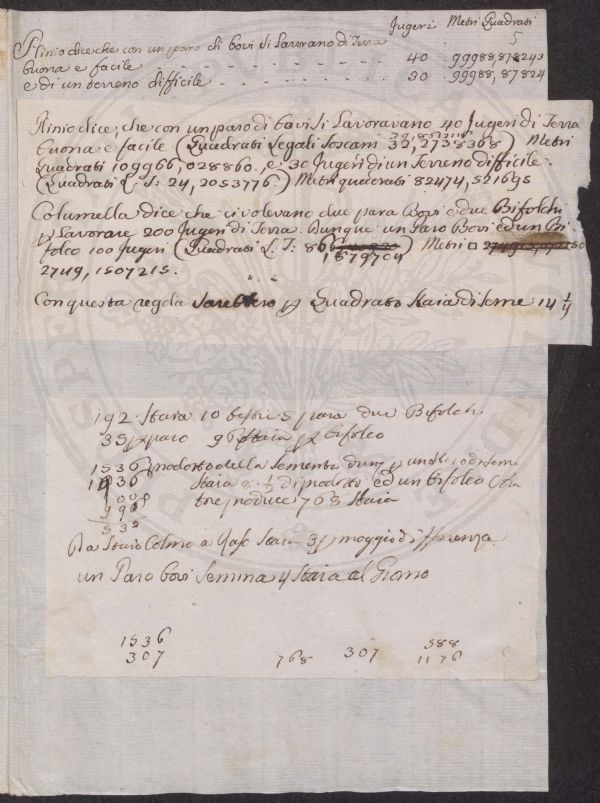 Jugeri Metri Quadrati
Plinio dice che con un paro di bovi si Lavorano di Terra 5
buona e facile - - - - - 40 . 99988,878243
e di un terreno difficile - - - - - 30 . 99988,87824
Plinio dice, che con un paro di bovi si Lavoravano 40 Jugeri di Terra
buona e facile (Quadrati Legali Toscani 32,2738368) Metri
Quadrati 109966,028860. e 30 Jugeri di un Terreno difficile.
(Quadrati L. T: 24,2053776.) Metri quadrati 82474,521695
Columella dice che ci volevano due para Bovi e due Bifolchi
p Lavorare 200 Jugeri di Terra. Dunque un Paro Bovi ed un Bi
folco 100 Jugeri (Quadrati L. T: 86 Metri □
1579704
2749,1507215.
Con questa regola Sarebbero p Quadrato Staia di Seme 14 1/4
192. Staia 10 bestie 5 para due Bifolchi
35 p paro 96 Staia p bifolco
1536 prodotto della Sementa
1936 Staia 8. 1/2 di prodotto ed un bifolco
produce 768 Staia
996
532
Da Staio Colmo a Raso Staia 3 p moggio di differenza
un Paro bovi Semina 4 Staia al Giorno
1536
307 768 307 588
1176